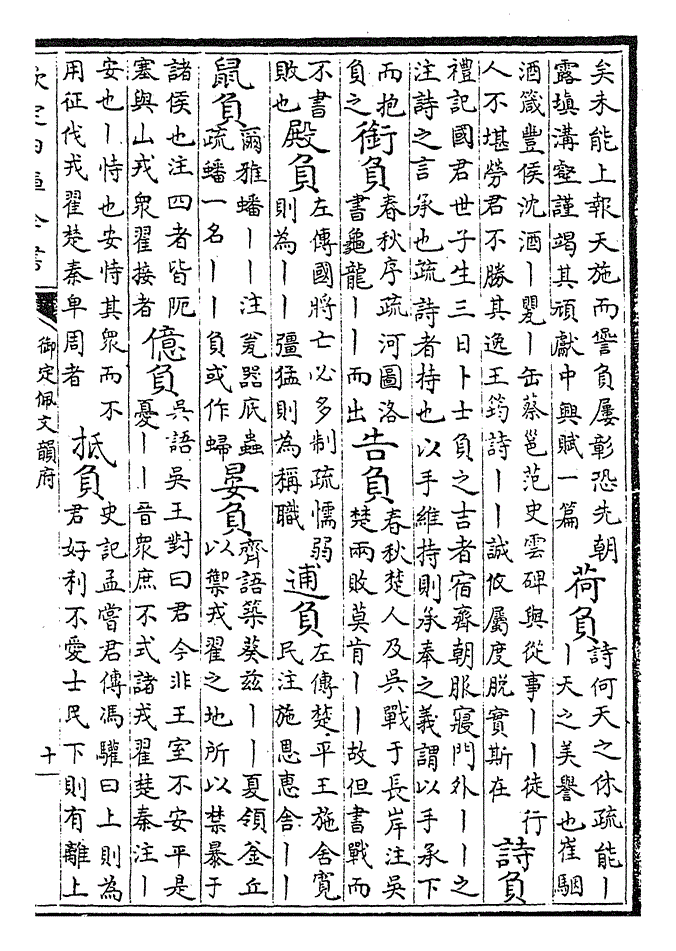 矣未能上報天施而諐負屢彰恐先朝
露填溝壑謹竭其頑獻中興賦一篇
荷負
詩何天之休疏能丨
丨天之美譽也崔駰
酒箴豐侯沈酒丨甖丨缶蔡邕范史雲碑與從事丨丨徒行
人不堪勞君不勝其逸王筠詩丨丨誠攸屬度脫實斯在
詩負
禮記國君世子生三日卜士負之吉者宿齊朝服寢門外丨丨之
注詩之言承也疏詩者持也以手維持則承奉之義謂以手承下
而抱
負之
銜負
春秋序疏河圖洛
書龜龍丨丨而出
告負
春秋楚人及吳戰于長岸注吳
楚兩敗莫肯丨丨故但書戰而
不書
敗也
殿負
左傳國將亡必多制疏懦弱
則為丨丨彊猛則為稱職
逋負
左傳楚平王施舍寬
民注施恩惠舍丨丨
鼠負
爾雅蟠丨丨注瓮器底蟲
疏蟠一名丨丨負或作蝜
晏負
齊語築葵茲丨丨夏領釜丘
以禦戎翟之地所以禁暴于
諸侯也注四者皆阨
塞與山戎衆翟接者
億負
吳語吳王對曰君今非王室不安平是
憂丨丨晉衆庶不式諸戎翟楚秦注丨
安也丨恃也安恃其衆而不
用征伐戎翟楚秦卑周者
抵負
史記孟嘗君傳馮驩曰上則為
君好利不愛士民下則有離上
欽定四庫全書
御定佩文韻府
十